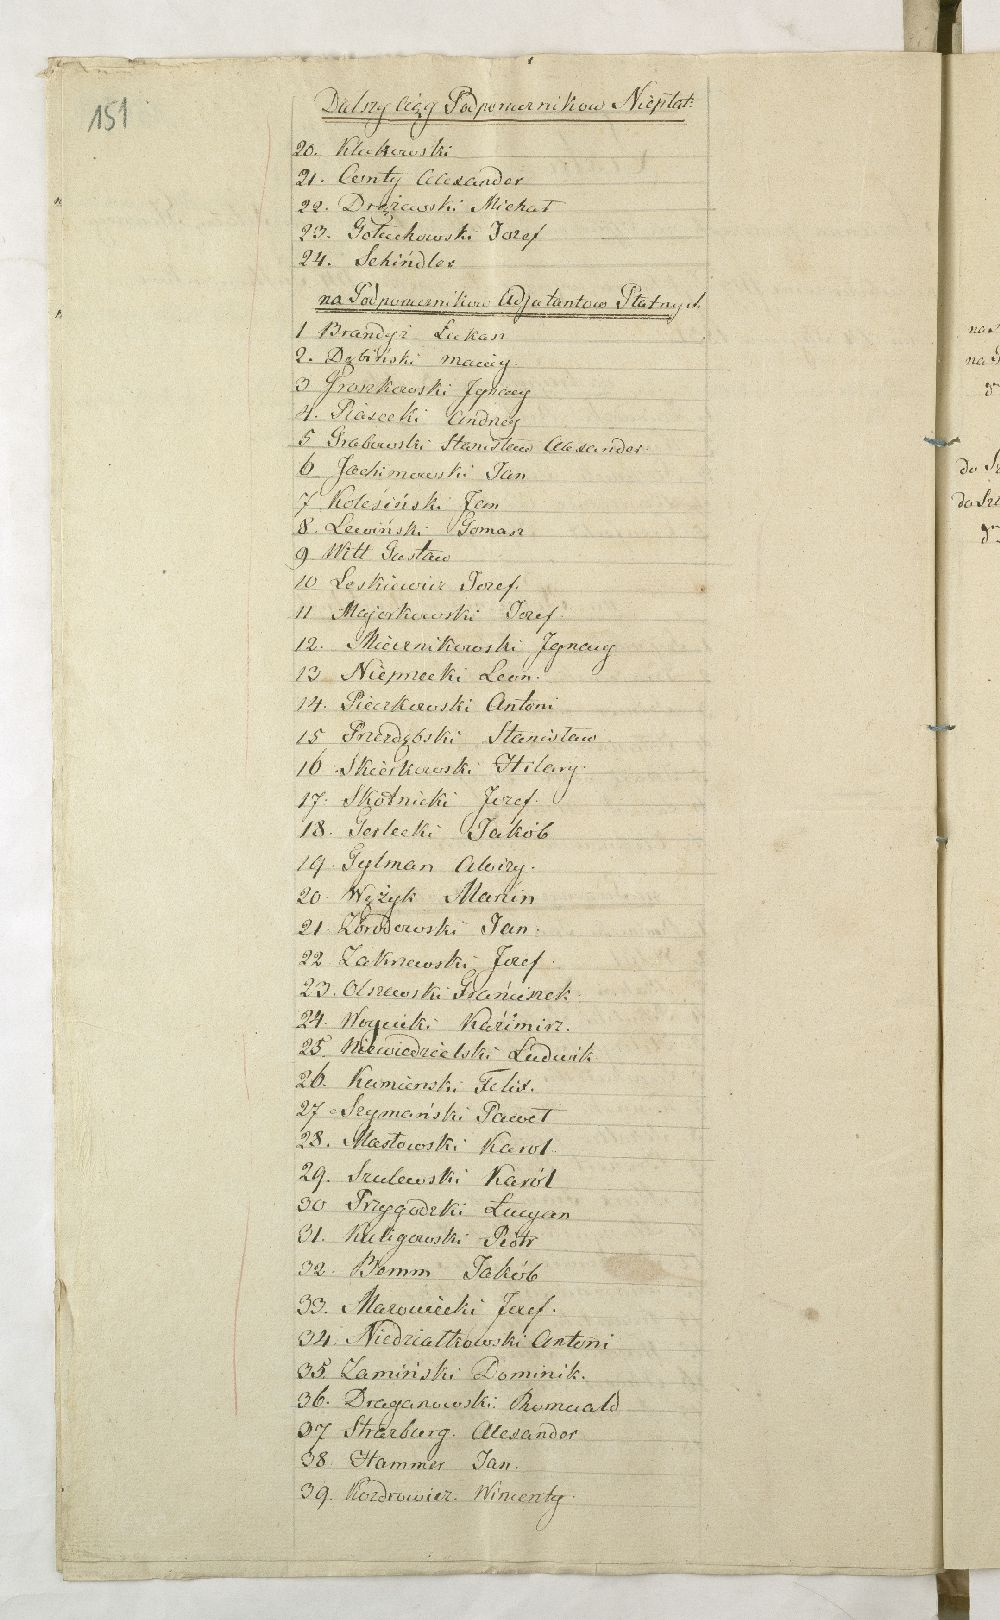 151
Dalszy Ciąg Podpomernikow Niepłat:
20. Klukowski
21. Centy Alexander
22. Drążewski Michał
23. Gołuchowski Jozef
24. Schindler
na Podpomernikow Adjutantow Płatnych
1 Brandys Łukasz
2. Dębiński Maciej
3 Gronkowski Jgnacy
4. Piasecki Andrzej
5 Grabowski Stanisław Alexander
6 Jachimowski Jan
7 Kolesiński Jan
8. Lewiński Tomasz
9 Witt Gustaw
10 Leskiewicz Jozef.
11 Majorkowski Jozef.
12. Miecznikowski Jgnacy
13 Niepiecki Leon.
14. Pieczkowski Antoni
15 Przezdębski Stanisław
16 Skierkowski Hilary.
17. Skotnicki Jozef.
18. Terlecki Jakób
19. Tylman Aloizy.
20. Wężyk Marcin
21. Zbrodowski Jan.
22 Zakrzewski Jozef.
23. Olszewski Franciszek.
24. Woycicki Kazimirz.
25. Niewiedzielski Ludwik
26. Kamienski Felix.
27 Szymański Paweł
28. Masłowski Karol.
29. Szulewski Karól
30 Przygodzki Łucyan
31. Kuligowski Piotr
32. Bomm Jakób
33. Mazowiecki Jozef.
34. Niedziałkowski Antoni
35. Zamiński Dominik.
36. Draganowski. Romuald
37 Strazburg. Alexander
38. Hammer Jan.
39. Kozdrowicz. Wincenty.
na
na
do
do